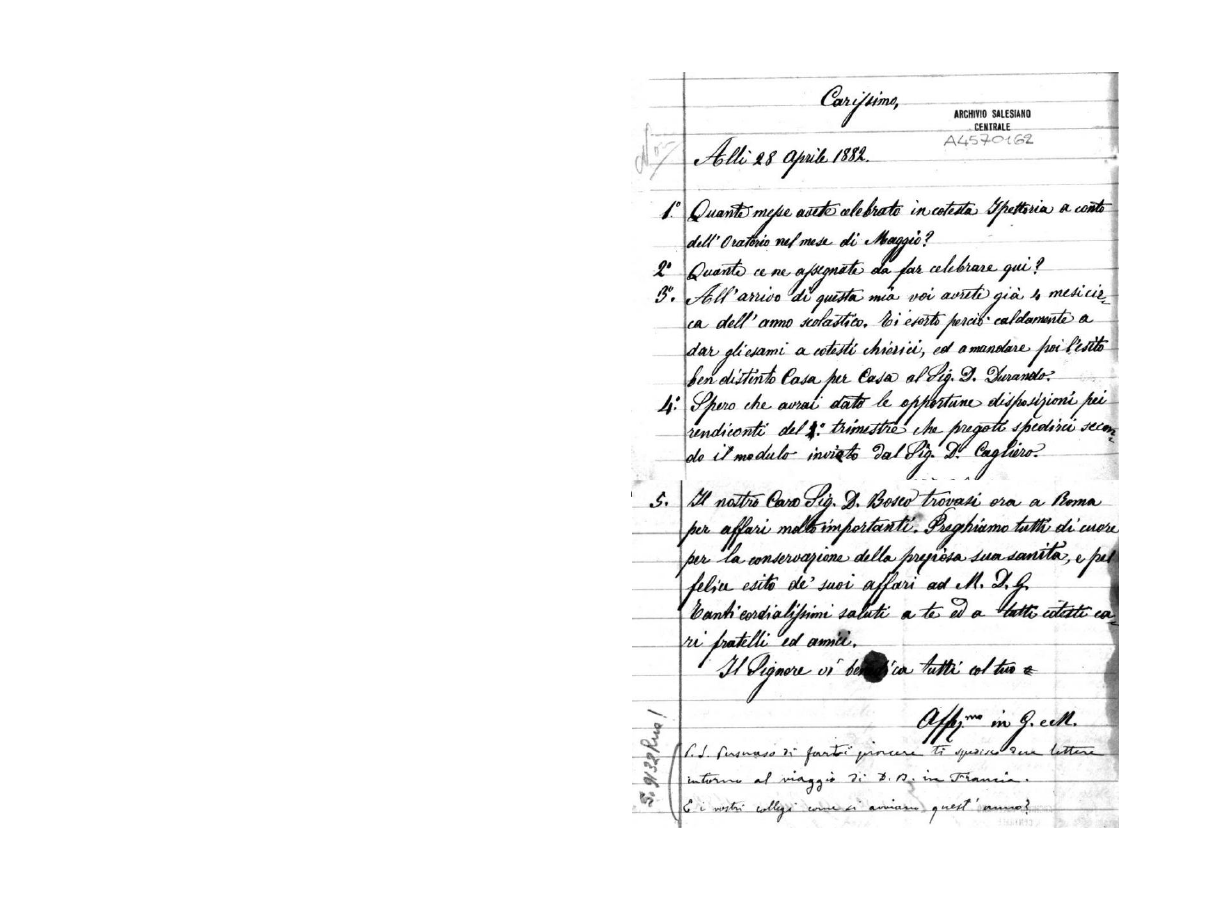 Carissimo,
ARCHIVIO SALESIANO
CENTRALE
A4570162
Alli 28 Aprile 1882.
1.° Quante messe avete celebrato in cotesta Ispettoria a conto
dell'Oratorio nel mese di Maggio?
2° Quante ce ne assegnate da far celebrare qui?
3.° All'arrivo di questa mia voi avrete già 4 mesi cir-
ca dell'anno scolastico. Ti esorto perciò caldamente a
dar gli esami a cotesti chierici, ed a mandare poi l'esito
ben distinto Casa per Casa al Sig. D. Durando.
4.° Spero che avrai dato le opportune disposizioni pei
rendiconti del 1.° trimestre che pregoti spedirci secon-
do il modulo inviato dal Sig. D. Cagliero.
5. Il nostro Caro Sig. D. Bosco trovasi ora a Roma
per affari molto importanti. Preghiamo tutti di cuore
per la conservazione della preziosa sua sanità, e pel
felice esito de' suoi affari ad M. D. G.
Tanti cordialissimi saluti a te ed a tutti cotesti ca-
ri fratelli ed amici.
Il Signore vi benedica tutti col tuo
Affez.mo in G. e M.
P.S. Persuaso di farti piacere ti spedisco due lettere
intorno al viaggio di D. B. in Francia.
E i vostri collegi come si avviano quest'anno?
S. 9132 Rua!